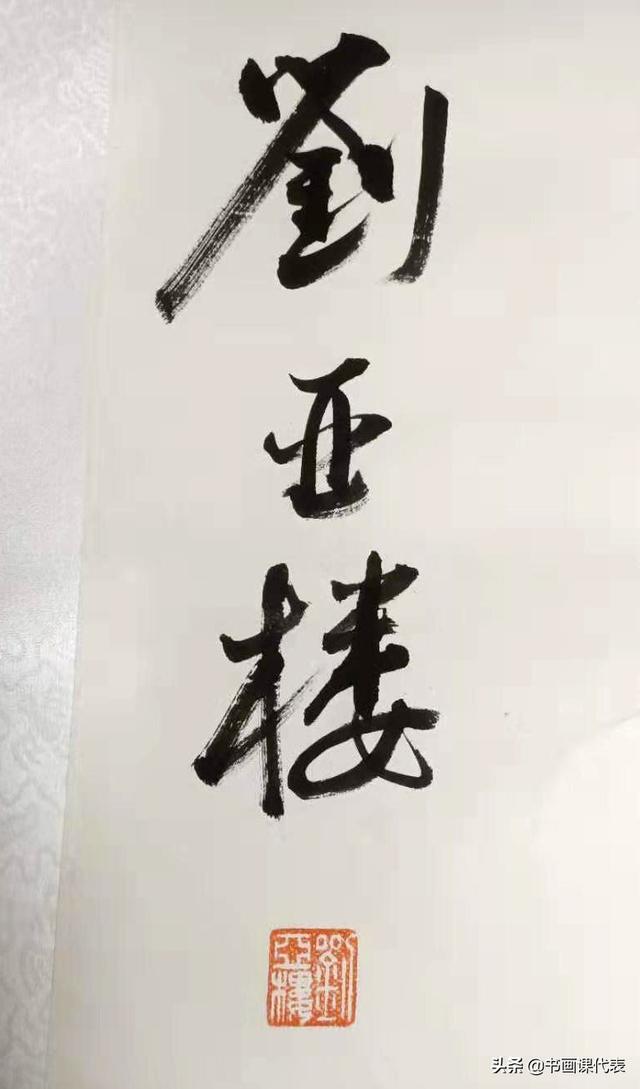 劉亚楼
劉亞樓
头条 @书画课代表